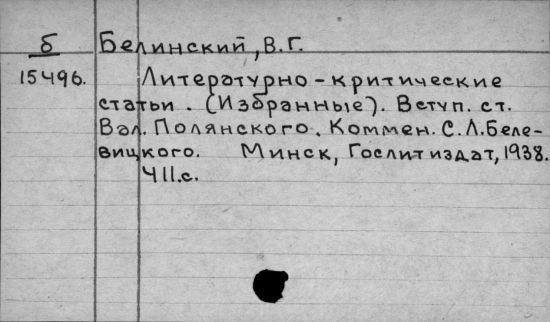 б Белинский, В.Г.
15496. Литературно-критические
статьи. (Избранные). Вступ. ст.
Вал. Полянского. Коммен. С.Л.Беле-
вицкого. Минск, Гослитиздат, 1938.
411.с.